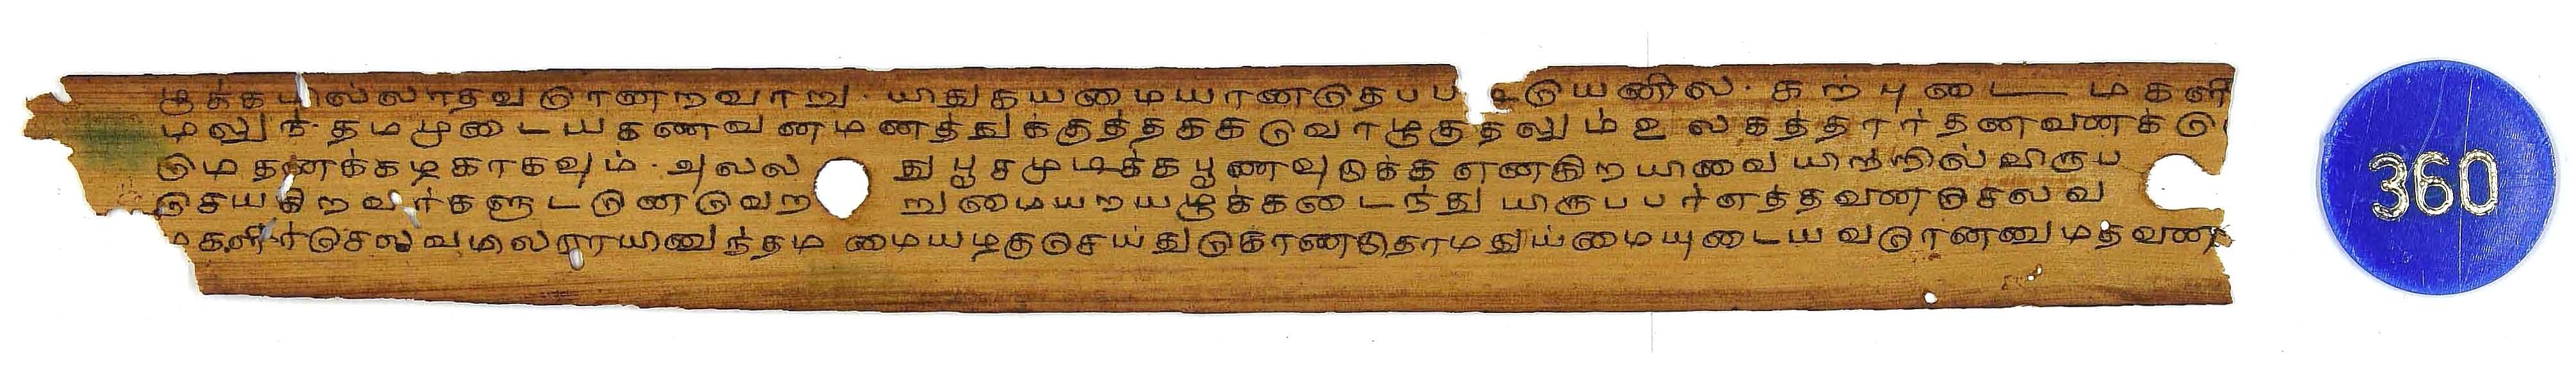 ழுக்கமில்லாதவரொனறவாறு. யாதுகயமையானெதபப உயெனில். கற்புடை மகளி
மலுந் தமமுடையகணவனமனத்துக்குத்தகக வொழகுதலும் உலகத்தார் தனவணக்
மெ தனக்கழகாகவும். அலல து பூசமுடிக்க பூணவுடுக்க எனகிற யிவையிற்றில் விருப
செயகிறவர்களுடனெவெற றுமையறயழுக்கடைந்து யிருபபர்எத்தவண செலவ
மகளிர்செலவமிலராயினுந்தம மையழகுசெய்துகொணடொமதுய்மையுடையவரொனனுமதவண
360